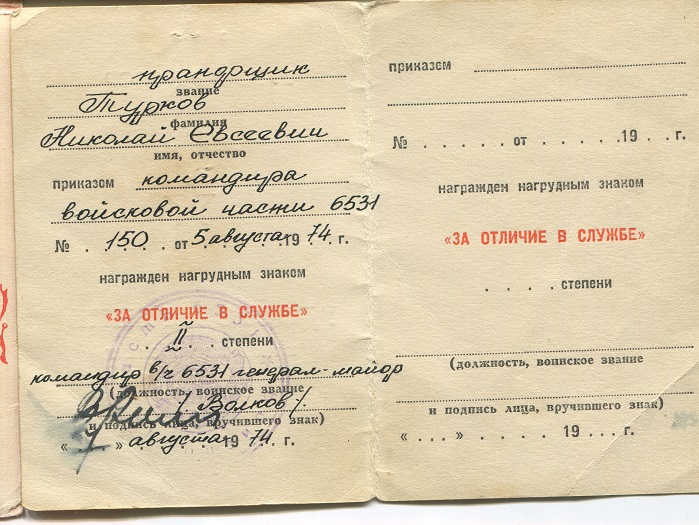 прапорщик
звание
Турков
фамилия
Николай Евсеевич
имя, отчество
приказом командира
войсковой части 6531
№ 150 от 5 августа 1974 г.
награжден нагрудным знаком
«ЗА ОТЛИЧИЕ В СЛУЖБЕ»
II степени
командир в/ч 6531 генерал-майор
(должность, воинское звание
/Волков/
и подпись лица, вручившего знак)
«7» августа 1974 г.
приказом
№ . . . . . от . . . . . 19 . . г.
награжден нагрудным знаком
«ЗА ОТЛИЧИЕ В СЛУЖБЕ»
. . . . степени
(должность, воинское звание
и подпись лица, вручившего знак)
« . . . » . . . . . 19 . . . г.